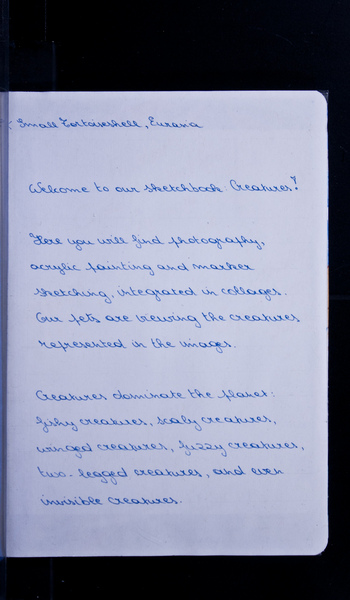 Small Tortoiseshell, Eurasia
Welcome to our sketchbook: Creatures!
Here you will find photography,
acrylic painting and marker
sketching, integrated in collages.
Our pets are viewing the creatures
represented in the images.
Creatures dominate the planet:
fishy creatures, scaly creatures,
winged creatures, fuzzy creatures,
two-legged creatures, and even
invisible creatures.